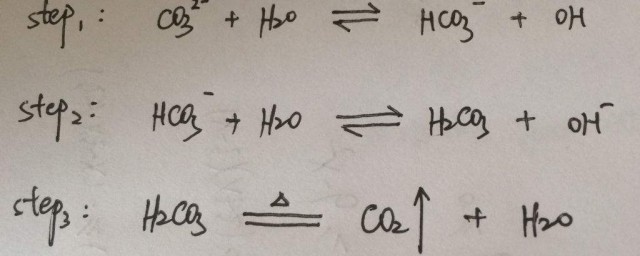 step₁: CO₃²⁻ + H₂O ⇌ HCO₃⁻ + OH
step₂: HCO₃⁻ + H₂O ⇌ H₂CO₃ + OH⁻
step₃: H₂CO₃ ≜ CO₂↑ + H₂O